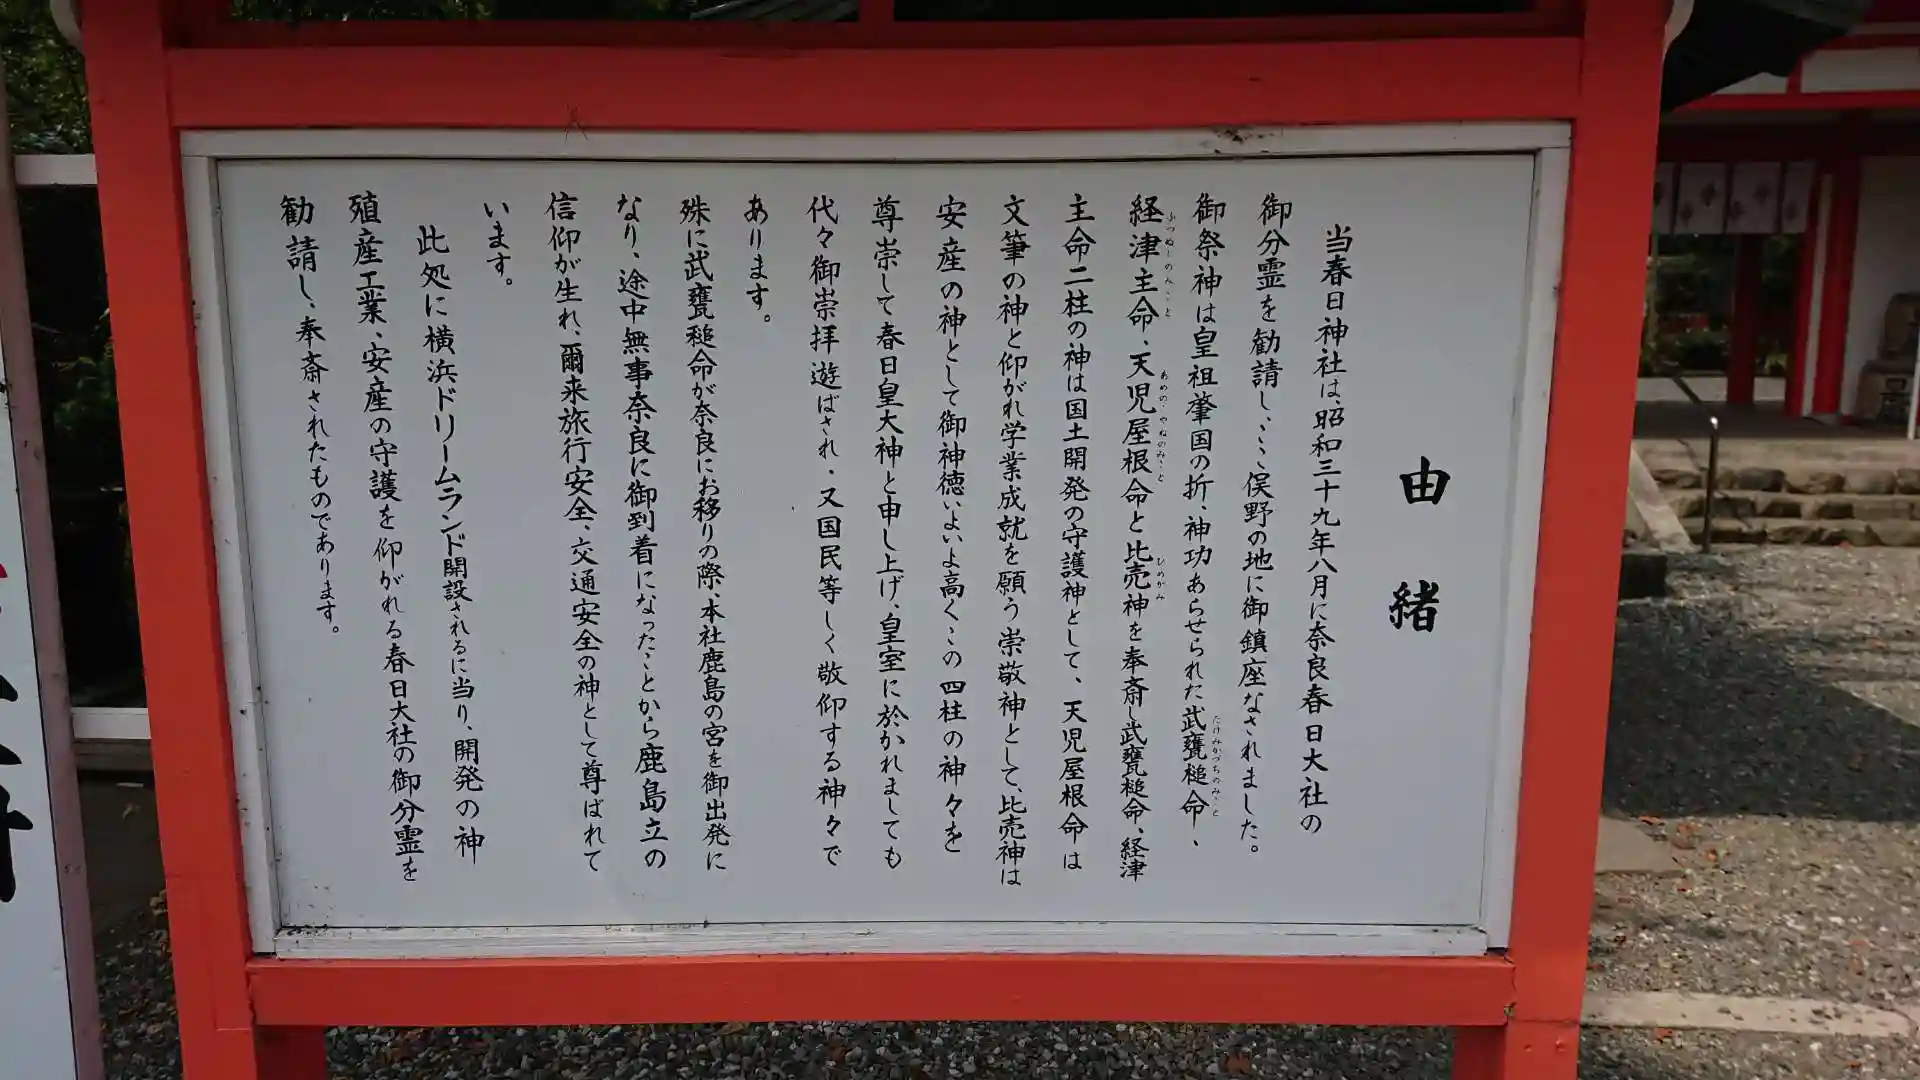 由緒
当春日神社は、昭和三十九年八月に奈良春日大社の
御分霊を勧請し、こゝ俣野の地に御鎮座なされました。
御祭神は皇祖肇国の折、神功あらせられた武甕槌命、
たけみかづちのみこと
経津主命、天児屋根命と比売神を奉斎し武甕槌命、経津
ふつぬしのみこと
あめのやねのみこと
ひめがみ
主命二柱の神は国土開発の守護神として、天児屋根命は
文筆の神と仰がれ学業成就を願う崇敬神として、比売神は
安産の神として御神徳いよいよ高くこの四柱の神々を
尊崇して春日皇大神と申し上げ、皇室に於かれましても
代々御崇拝遊ばされ、又国民等しく敬仰する神々で
あります。
殊に武甕槌命が奈良にお移りの際、本社鹿島の宮を御出発に
なり、途中無事奈良に御到着になったことから鹿島立の
信仰が生れ、爾来旅行安全、交通安全の神として尊ばれて
います。
此処に横浜ドリームランド開設されるに当り、開発の神
殖産工業、安産の守護を仰がれる春日大社の御分霊を
勧請し、奉斎されたものであります。